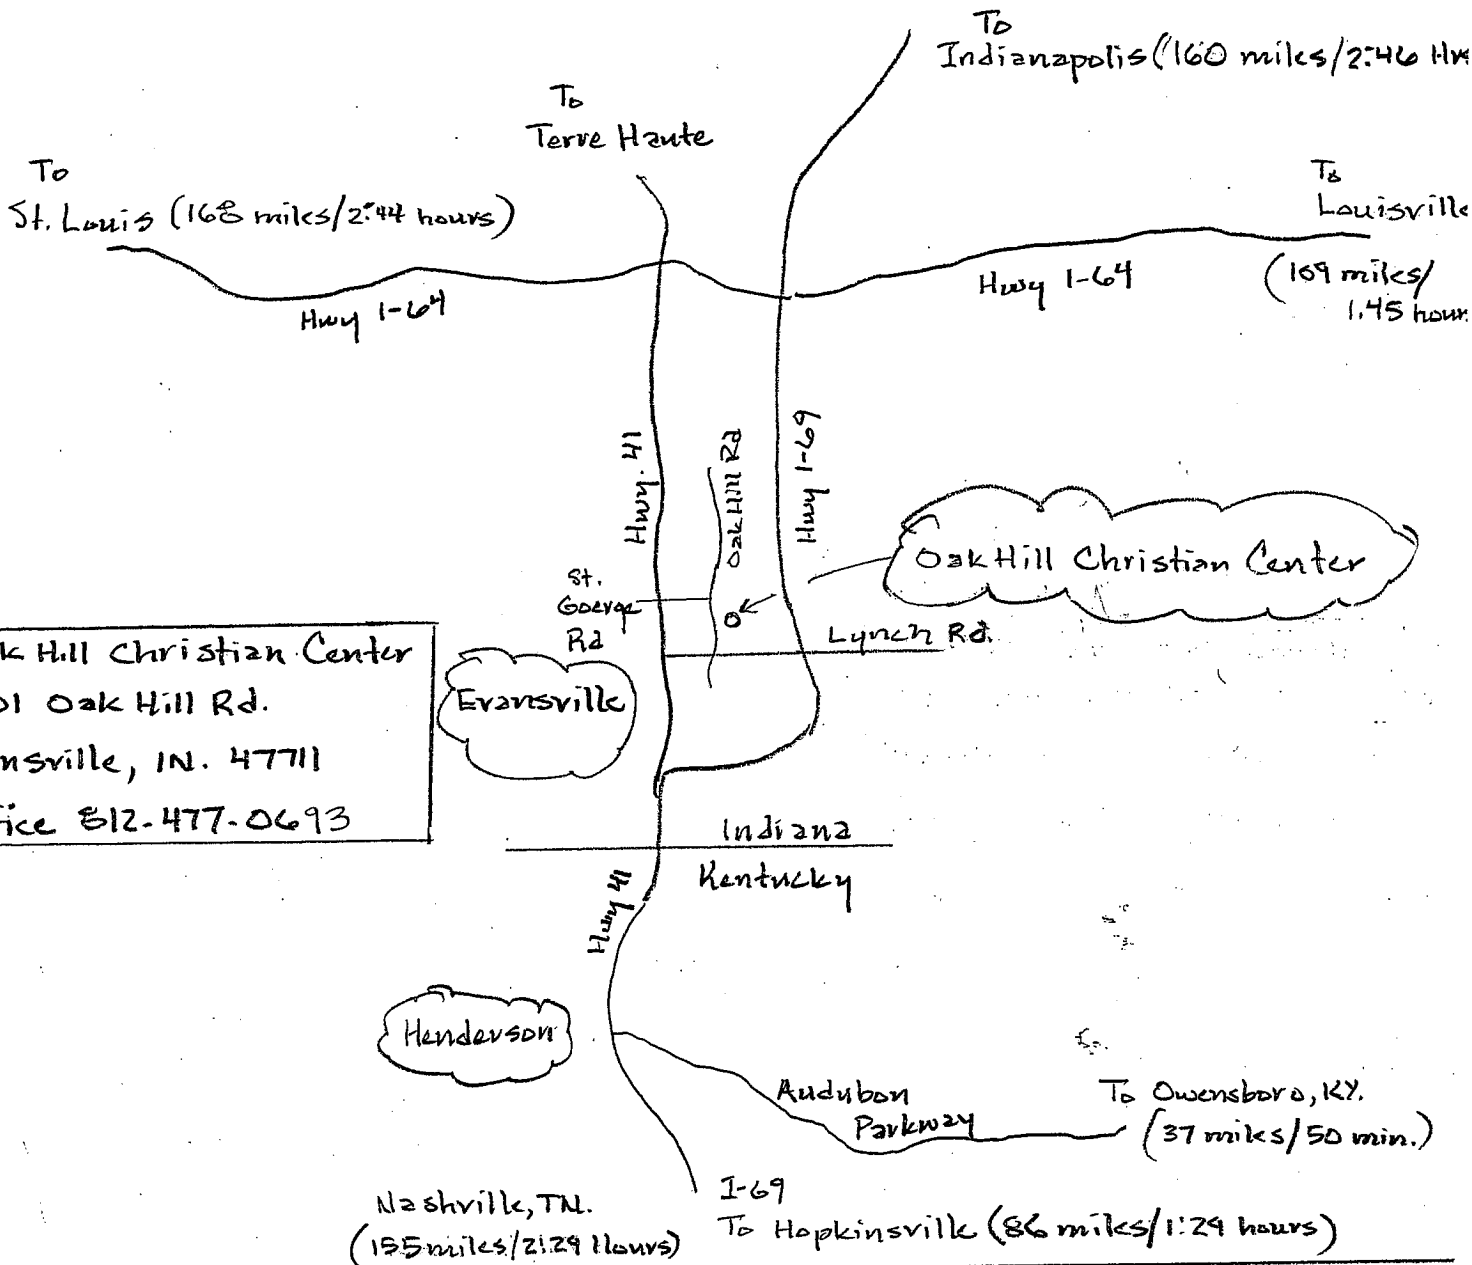 To
Indianapolis (160 miles/2:46 Hrs
To
Terre Haute
To
St. Louis (168 miles/2:44 hours)
To
Louisville
(109 miles/
1.45 hour
Hwy 1-64
Hwy 1-64
Hwy. 41
Oak Hill Rd
Hwy 1-69
Oak Hill Christian Center
St.
Goerge
Rd
Lynch Rd.
k Hill Christian Center
01 Oak Hill Rd.
nsville, IN. 47711
fice 812-477-0693
Evansville
Indiana
Kentucky
Hwy 41
Henderson
Audubon
Parkway
To Owensboro, KY.
(37 miles/50 min.)
Nashville, TN.
(155 miles/2:29 Hours)
I-69
To Hopkinsville (86 miles/1:29 hours)